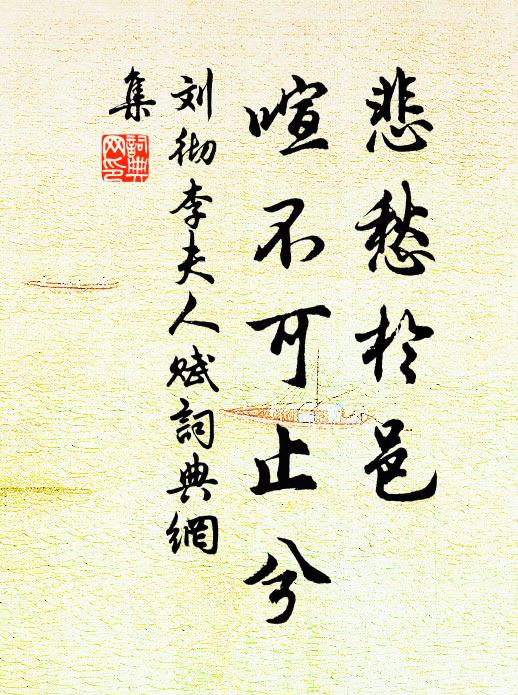 悲愁於邑
喧不可止兮
刘彻李夫人赋詞典網
集
詞典
网印